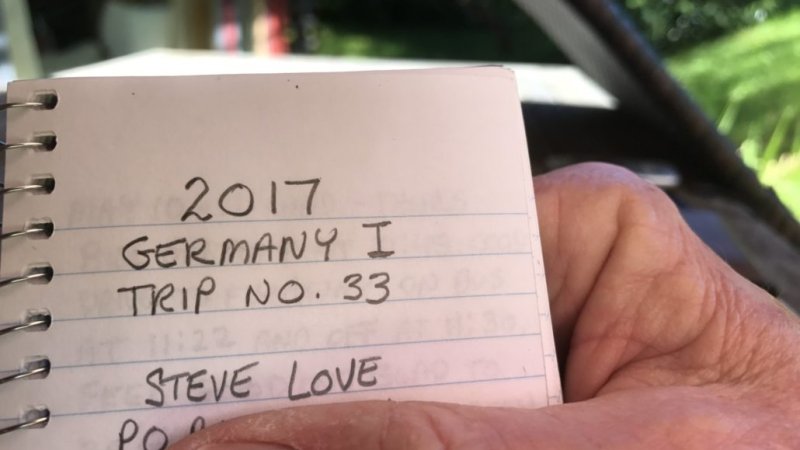 2017
GERMANY I
TRIP NO. 33
STEVE LOVE
PO